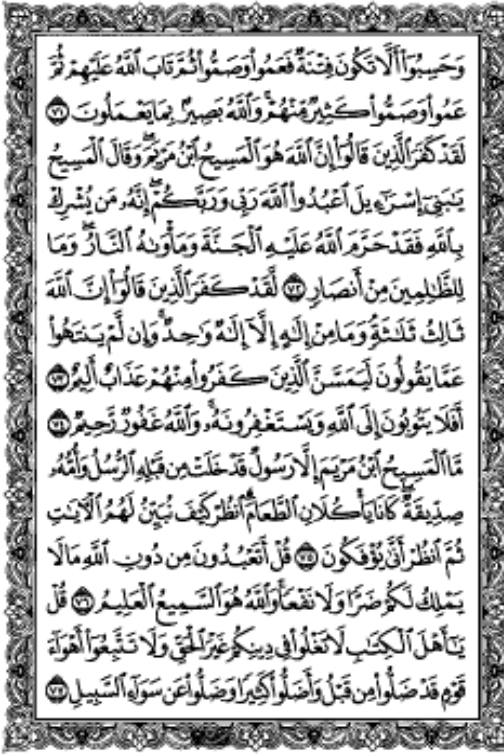 وَحَسِبُوٓا۟ أَلَّا تَكُونَ فِتْنَةٌ فَعَمُوا۟ وَصَمُّوا۟ ثُمَّ تَابَ ٱللَّهُ عَلَيْهِمْ ثُمَّ
عَمُوا۟ وَصَمُّوا۟ كَثِيرٌ مِّنْهُمْ ۚ وَٱللَّهُ بَصِيرٌۢ بِمَا يَعْمَلُونَ ٧١
لَقَدْ كَفَرَ ٱلَّذِينَ قَالُوٓا۟ إِنَّ ٱللَّهَ هُوَ ٱلْمَسِيحُ ٱبْنُ مَرْيَمَ ۖ وَقَالَ ٱلْمَسِيحُ
يَـٰبَنِىٓ إِسْرَٰٓءِيلَ ٱعْبُدُوا۟ ٱللَّهَ رَبِّى وَرَبَّكُمْ ۖ إِنَّهُۥ مَن يُشْرِكْ
بِٱللَّهِ فَقَدْ حَرَّمَ ٱللَّهُ عَلَيْهِ ٱلْجَنَّةَ وَمَأْوَىٰهُ ٱلنَّارُ ۖ وَمَا
لِلظَّـٰلِمِينَ مِنْ أَنصَارٍ ٧٢ لَّقَدْ كَفَرَ ٱلَّذِينَ قَالُوٓا۟ إِنَّ ٱللَّهَ
ثَالِثُ ثَلَـٰثَةٍ ۘ وَمَا مِنْ إِلَـٰهٍ إِلَّآ إِلَـٰهٌ وَٰحِدٌ ۚ وَإِن لَّمْ يَنتَهُوا۟
عَمَّا يَقُولُونَ لَيَمَسَّنَّ ٱلَّذِينَ كَفَرُوا۟ مِنْهُمْ عَذَابٌ أَلِيمٌ ٧٣
أَفَلَا يَتُوبُونَ إِلَى ٱللَّهِ وَيَسْتَغْفِرُونَهُۥ ۚ وَٱللَّهُ غَفُورٌ رَّحِيمٌ ٧٤
مَّا ٱلْمَسِيحُ ٱبْنُ مَرْيَمَ إِلَّا رَسُولٌ قَدْ خَلَتْ مِن قَبْلِهِ ٱلرُّسُلُ وَأُمُّهُۥ
صِدِّيقَةٌ ۖ كَانَا يَأْكُلَانِ ٱلطَّعَامَ ۗ ٱنظُرْ كَيْفَ نُبَيِّنُ لَهُمُ ٱلْـَٔايَـٰتِ
ثُمَّ ٱنظُرْ أَنَّىٰ يُؤْفَكُونَ ٧٥ قُلْ أَتَعْبُدُونَ مِن دُونِ ٱللَّهِ مَا لَا
يَمْلِكُ لَكُمْ ضَرًّا وَلَا نَفْعًا ۚ وَٱللَّهُ هُوَ ٱلسَّمِيعُ ٱلْعَلِيمُ ٧٦ قُلْ
يَـٰٓأَهْلَ ٱلْكِتَـٰبِ لَا تَغْلُوا۟ فِى دِينِكُمْ غَيْرَ ٱلْحَقِّ وَلَا تَتَّبِعُوٓا۟ أَهْوَآءَ
قَوْمٍ قَدْ ضَلُّوا۟ مِن قَبْلُ وَأَضَلُّوا۟ كَثِيرًا وَضَلُّوا۟ عَن سَوَآءِ ٱلسَّبِيلِ ٧٧